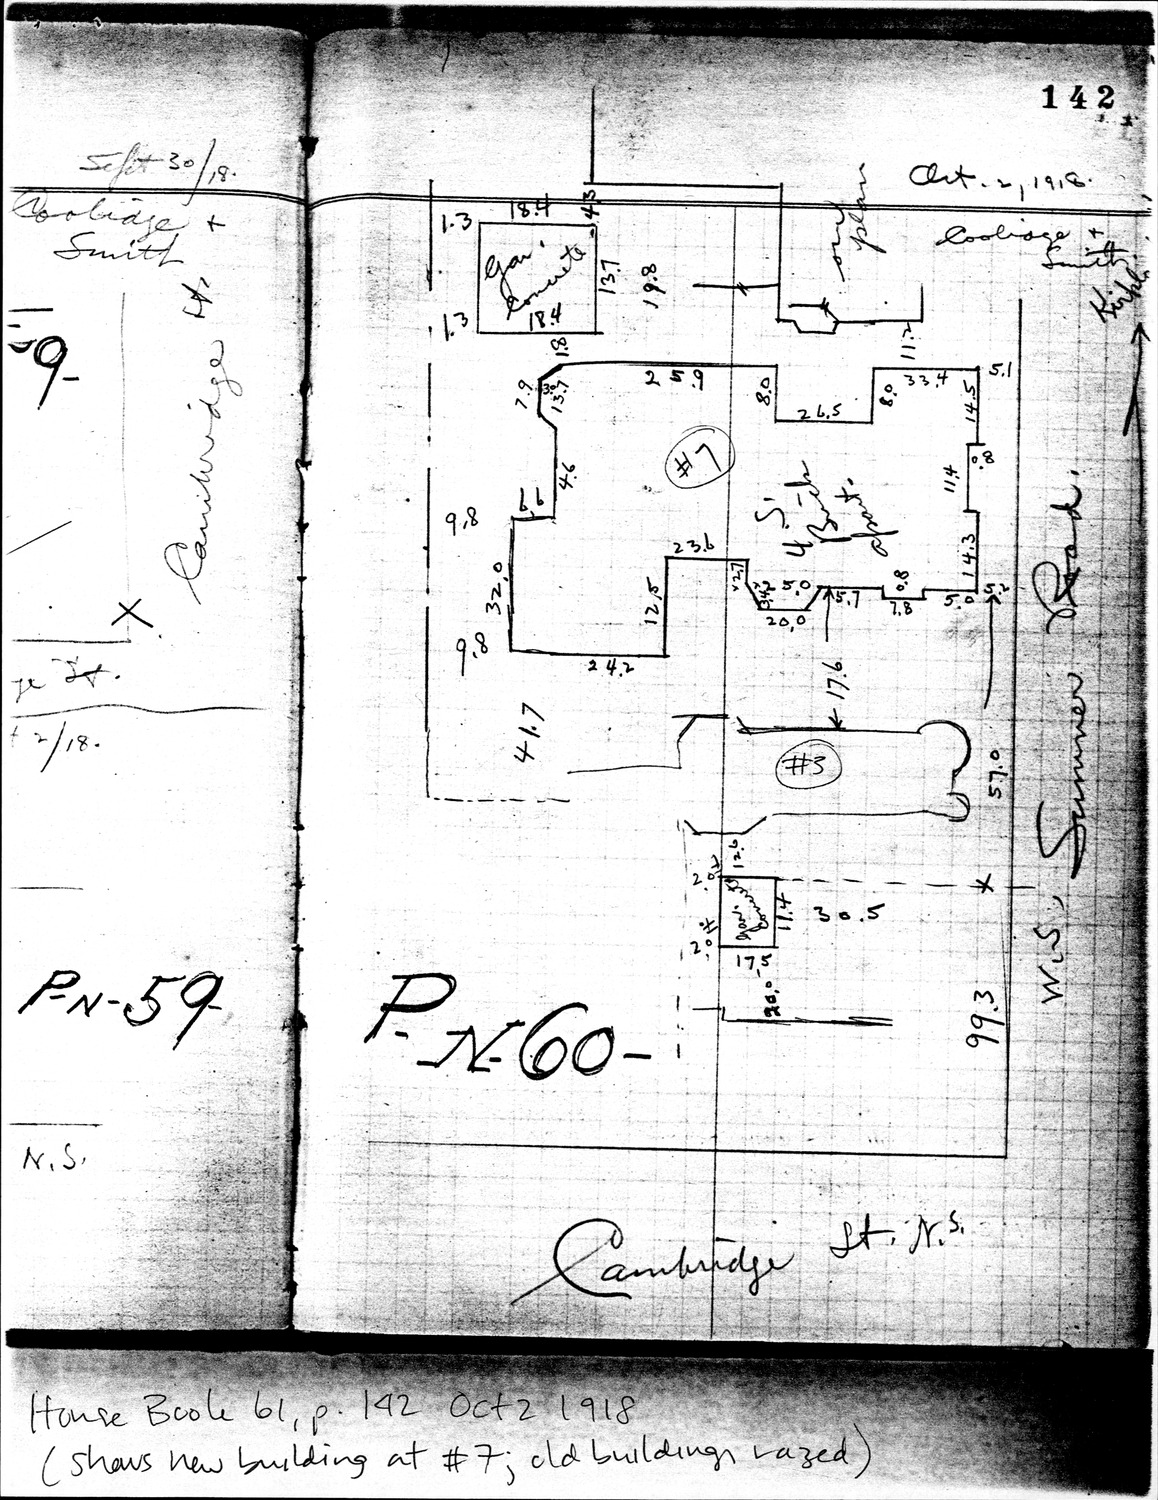 142
Sept 30/18.
Coolidge +
Smith
Cambridge St.
9-
X
ge St.
t 2/18.
P-N-59
N.S.
Oct. 2, 1918.
Coolidge +
Smith
plan
1.3
18.4
4.3
Gar.
Concrete
13.7
19.8
1.3
18.4
1.8
11.2
7.9
13.7
25.9
8.0
26.5
8.0
33.4
5.1
14.5
#7
.8
11.4
4.6
6.6
9.8
4 S.
Brick
apart.
32.0
23.6
12.5
14.3
5.0
5.7
0.8
7.8
5.0
5.2
20.0
9.8
24.2
17.6
41.7
#3
57.0
W.S. Sumner Road.
12.6
2.0
Gar.
11.4
30.5
2.0
17.5
20.0
99.3
P-N-60-
Cambridge St. N.S.
House Book 61, p. 142 Oct 2 1918
(shows new building at #7; old buildings razed)